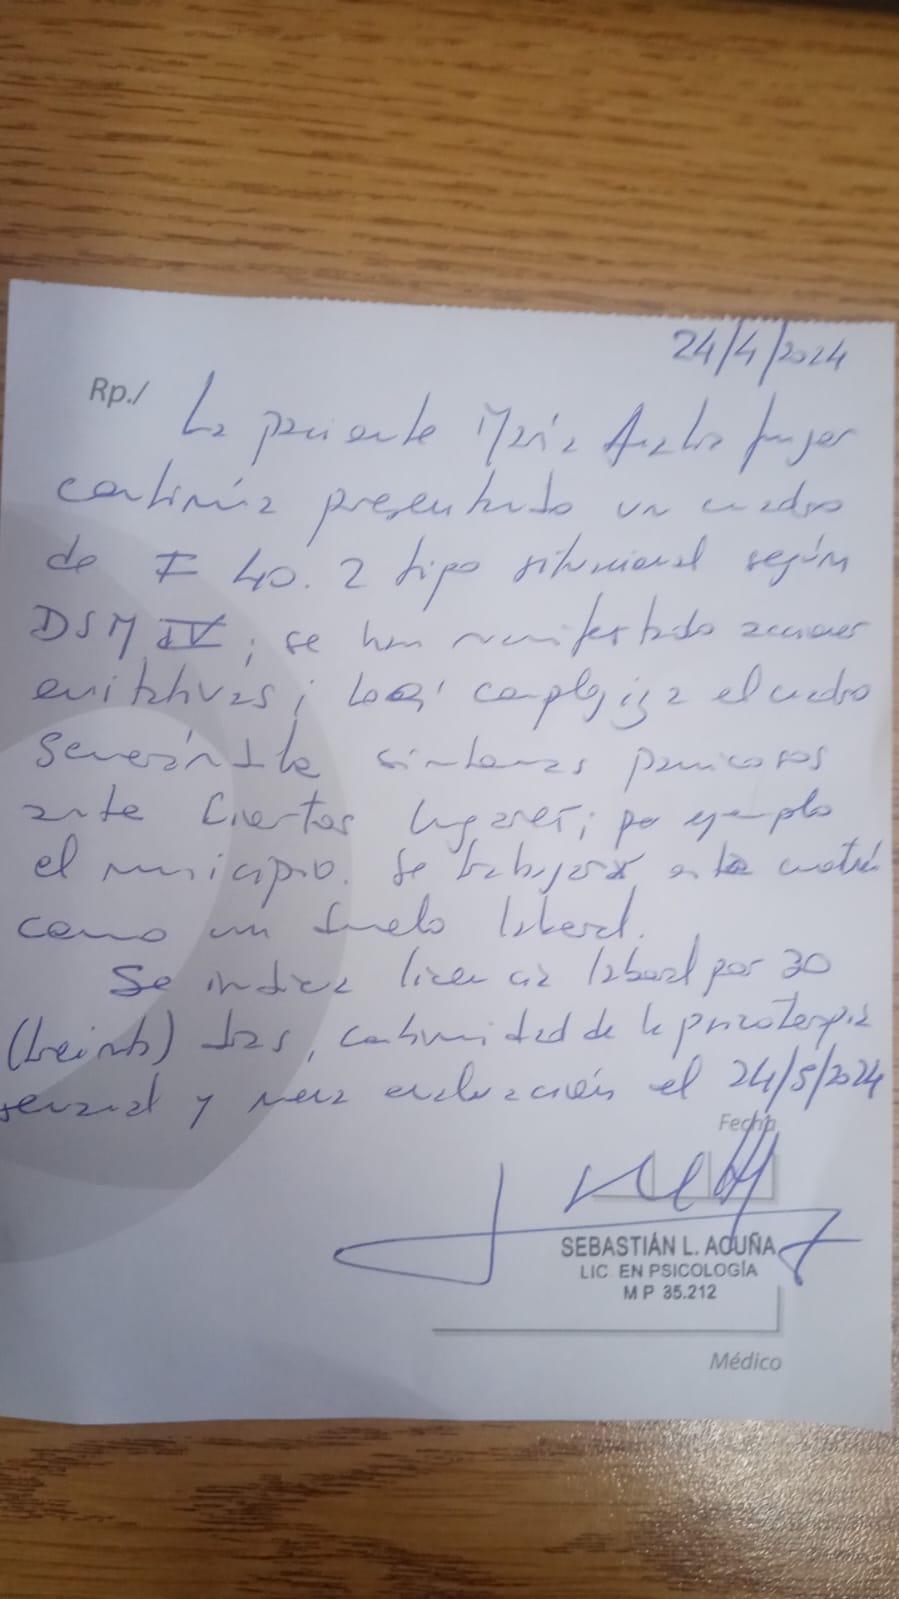 24/4/2024
Rp./ La paciente María Analia
continúa presentando un cuadro
de F 40.2 tipo situacional según
DSM IV; se han manifestado acciones
evitativas; complejiza el cuadro
síntomas panicosos
ante ciertos lugares; por ejemplo
el municipio. Se
como un duelo laboral.
Se indica licencia laboral por 30
(treinta) días, continuidad de la psicoterapia
semanal y nueva evaluación el 24/5/2024
Fecha
SEBASTIÁN L. ACUÑA
LIC. EN PSICOLOGÍA
M P 35.212
Médico